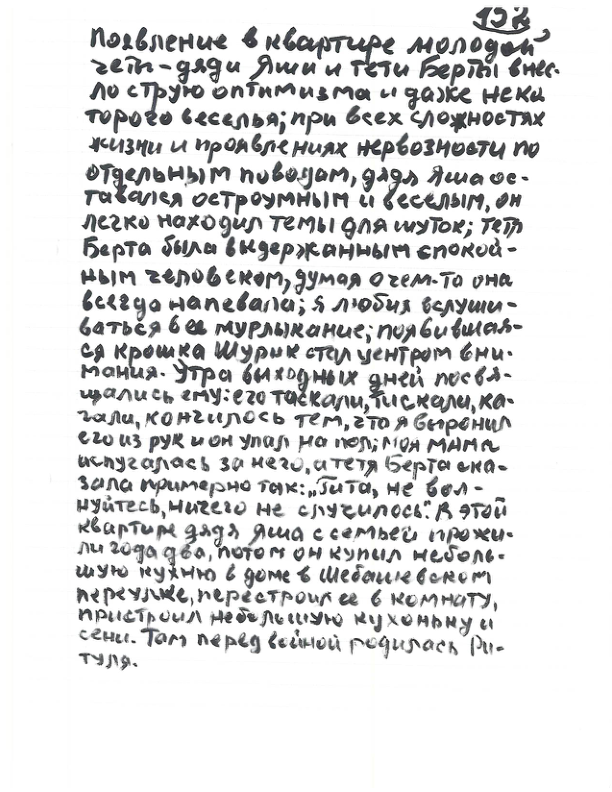 192
Появление в квартире молодой
четы - дяди Яши и тети Берты внес-
ло струю оптимизма и даже неко
торого веселья; при всех сложностях
жизни и проявлениях нервозности по
отдельным поводам, дядя Яша ос-
тавался остроумным и веселым, он
легко находил темы для шуток; тетя
Берта была выдержанным спокой-
ным человеком, думая о чем-то она
всегда напевала; я любил вслуши-
ваться в её мурлыкание; появившая-
ся крошка Шурик стал центром вни-
мания. Утра выходных дней посвя-
щались ему: его таскали, тискали, ка-
чали, кончилось тем, что я выронил
его из рук и он упал на пол; моя мама
испугалась за него, а тетя Берта ска-
зала примерно так: „Гита, не вол-
нуйтесь, ничего не случилось". В этой
квартире дядя Яша с семьей прожи-
ли года два, потом он купил неболь-
шую кухню в доме в Шебашевском
переулке, перестроил ее в комнату,
пристроил небольшую кухоньку и
сени. Там перед войной родилась Ри-
туля.